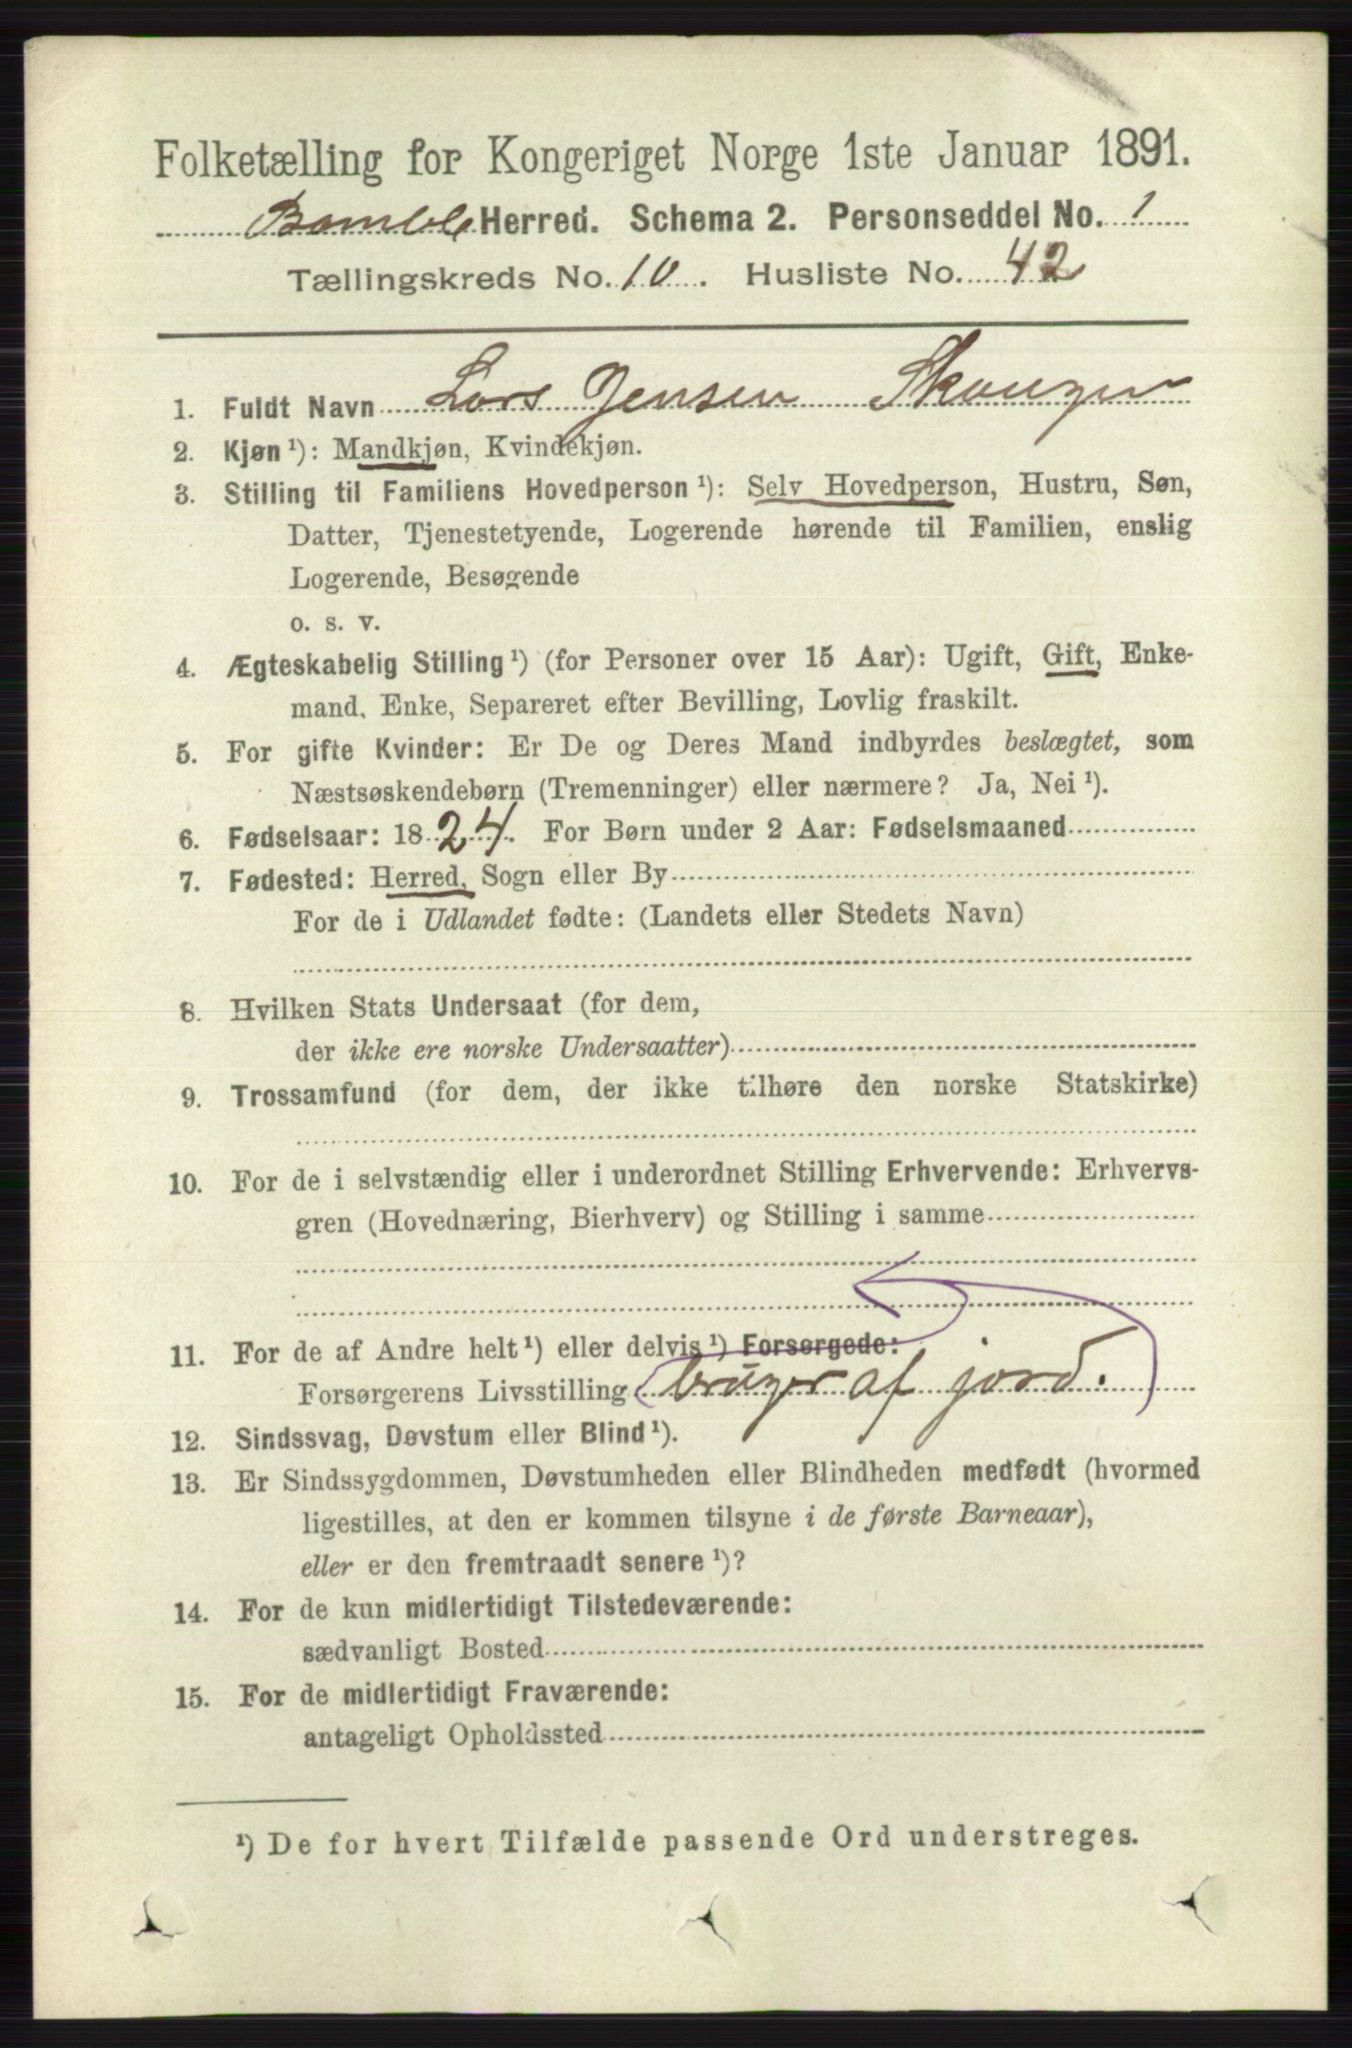 Folketælling for Kongeriget Norge 1ste Januar 1891.
Bamble Herred. Schema 2. Personseddel No. 1
Tællingskreds No. 10. Husliste No. 42
1. Fuldt Navn Lars Jensen
2. Kjøn ¹): Mandkjøn, Kvindekjøn.
3. Stilling til Familiens Hovedperson ¹): Selv Hovedperson, Hustru, Søn,
Datter, Tjenestetyende, Logerende hørende til Familien, enslig
Logerende, Besøgende
o. s. v.
4. Ægteskabelig Stilling ¹) (for Personer over 15 Aar): Ugift, Gift, Enke-
mand, Enke, Separeret efter Bevilling, Lovlig fraskilt.
5. For gifte Kvinder: Er De og Deres Mand indbyrdes beslægtet, som
Næstsøskendebørn (Tremenninger) eller nærmere? Ja, Nei ¹).
6. Fødselsaar: 1824. For Børn under 2 Aar: Fødselsmaaned
7. Fødested: Herred, Sogn eller By
For de i Udlandet fødte: (Landets eller Stedets Navn)
8. Hvilken Stats Undersaat (for dem,
der ikke ere norske Undersaatter)
9. Trossamfund (for dem, der ikke tilhøre den norske Statskirke)
10. For de i selvstændig eller i underordnet Stilling Erhvervende: Erhvervs-
gren (Hovednæring, Bierhverv) og Stilling i samme
11. For de af Andre helt ¹) eller delvis ¹) Forsørgede:
Forsørgerens Livsstilling bruger af jord.
12. Sindssvag, Døvstum eller Blind ¹).
13. Er Sindssygdommen, Døvstumheden eller Blindheden medfødt (hvormed
ligestilles, at den er kommen tilsyne i de første Barneaar),
eller er den fremtraadt senere ¹)?
14. For de kun midlertidigt Tilstedeværende:
sædvanligt Bosted
15. For de midlertidigt Fraværende:
antageligt Opholdssted
¹) De for hvert Tilfælde passende Ord understreges.